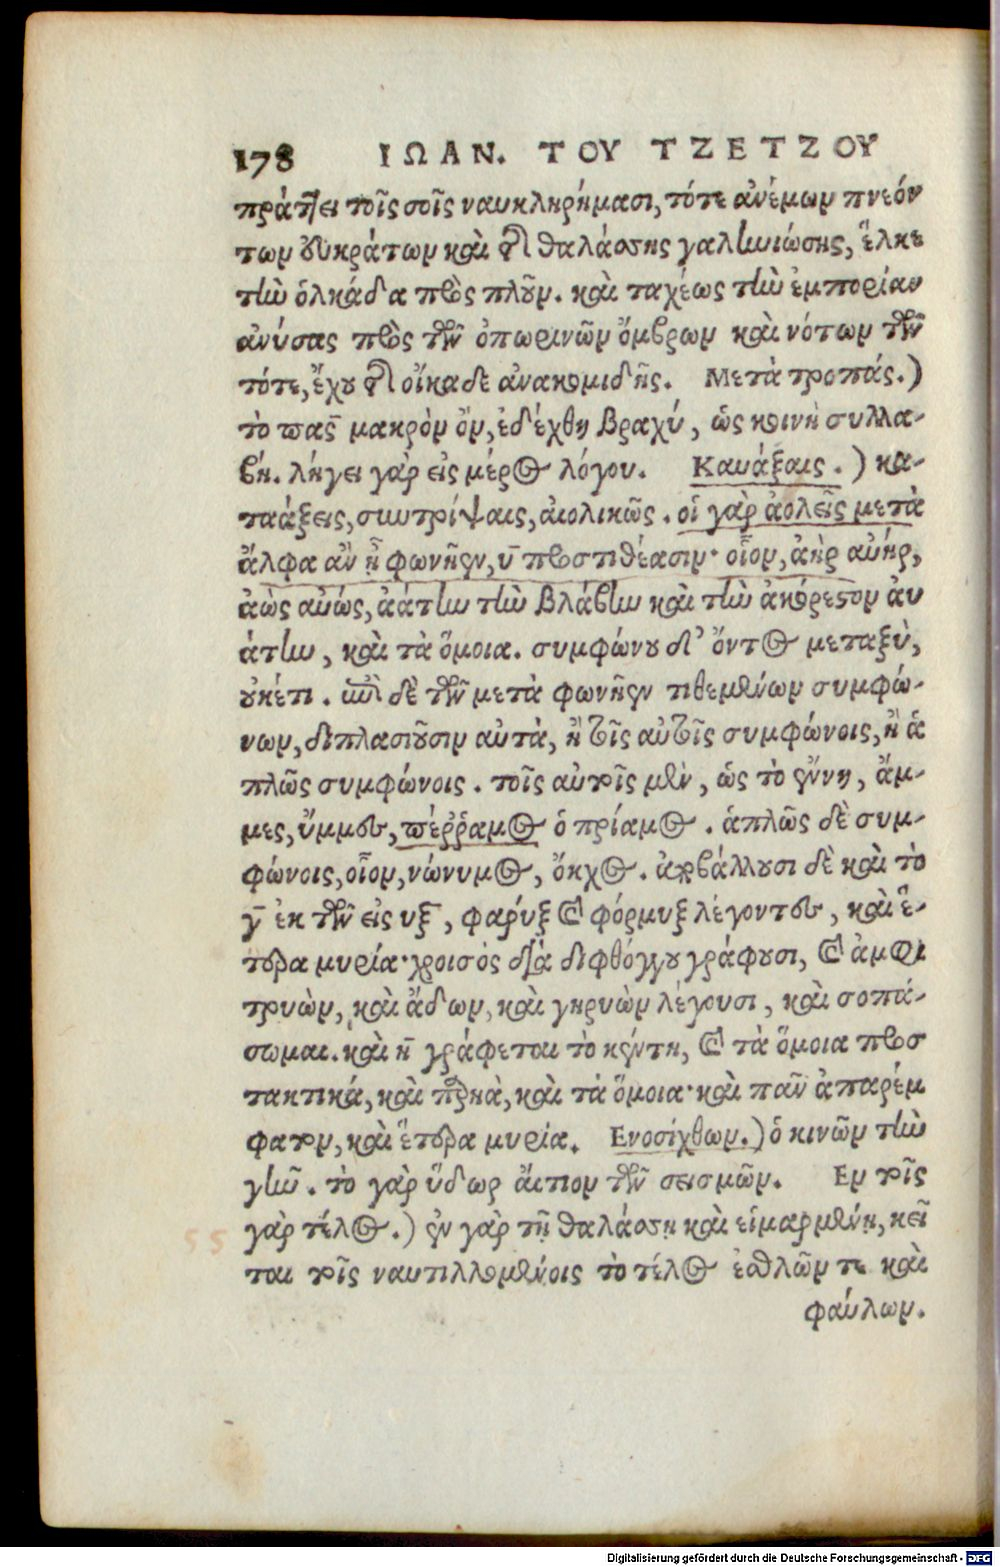 178 ΙΩΑΝ. ΤΟΥ ΤΖΕΤΖΟΥ
πράττει τοῖς σοῖς ναυκληρήμασι, τότε ἀνέμων πνεόν
των εὐκράτων καὶ τῆς θαλάσσης γαληνιώσης, ἕλκε
τὴν ὁλκάδα πρὸς πλοῦν. καὶ ταχέως τὴν ἐμπορίαν
ἀνύσας πρὸς τῶν ὀπωρινῶν ὄμβρων καὶ νότων τῶν
τότε, ἔχου τῆς οἴκαδε ἀνακομιδῆς. Μετὰ τροπάς.)
τὸ πας̄ μακρὸν ὂν, ἐδέχθη βραχύ, ὡς κοινὴ συλλα-
βή. λήγει γὰρ εἰς μέρος λόγου. Καυάξαις.) κα-
ταάξεις, συντρίψαις, αἰολικῶς. οἱ γὰρ ἀολεῖς μετὰ
ἄλφα ἂν ᾖ φωνῆεν, υ̅ προστιθέασιν· οἷον, ἀὴρ αὐήρ,
ἀὼς αὐώς, ἀάτην τὴν βλάβην καὶ τὴν ἀκόρεστον ἀυ
άτην, καὶ τὰ ὅμοια. συμφώνου δ' ὄντος μεταξὺ,
οὐκέτι. ἐπὶ δὲ τῶν μετὰ φωνῆεν τιθεμένων συμφώ-
νων, διπλασιοῦσιν αὐτὰ, ἢ τοῖς αὐτοῖς συμφώνοις, ἢ ἁ
πλῶς συμφώνοις. τοῖς αὐτοῖς μὲν, ὡς τὸ ἔννη, ἄμ-
μες, ὔμμες, πέῤῥαμος ὁ πρίαμος. ἁπλῶς δὲ συμ-
φώνοις, οἷον, νώνυμος, ὄκχος. ἀποβάλλουσι δὲ καὶ τὸ
γ̅ ἐκ τῶν εἰς υξ̅, φαρύξ καὶ φόρμυξ λέγοντες, καὶ ἕ-
τερα μυρία· χροισὸς διὰ διφθόγγου γράφουσι, καὶ ἀμφι
τρυὼν, καὶ ἄδων, καὶ γηρυὼν λέγουσι, καὶ σοπά-
σωμαι. καὶ η̅ γράφεται τὸ κέντη, καὶ τὰ ὅμοια προσ
τακτικά, καὶ καὶ τὰ ὅμοια· καὶ πᾶν ἀπαρέμ
φατον, καὶ ἕτερα μυρία. Ενοσίχθων.) ὁ κινῶν τὴν
γῆν. τὸ γὰρ ὕδωρ αἴτιον τῶν σεισμῶν. Εν τοῖς
γὰρ τέλος.) ἐν γὰρ τῇ θαλάσσῃ καὶ εἱμαρμένῃ, κεῖ
55
ται τοῖς ναυτιλλομένοις τὸ τέλος ἐσθλῶν τε καὶ
φαύλων.
Digitalisierung gefördert durch die Deutsche Forschungsgemeinschaft - DFG